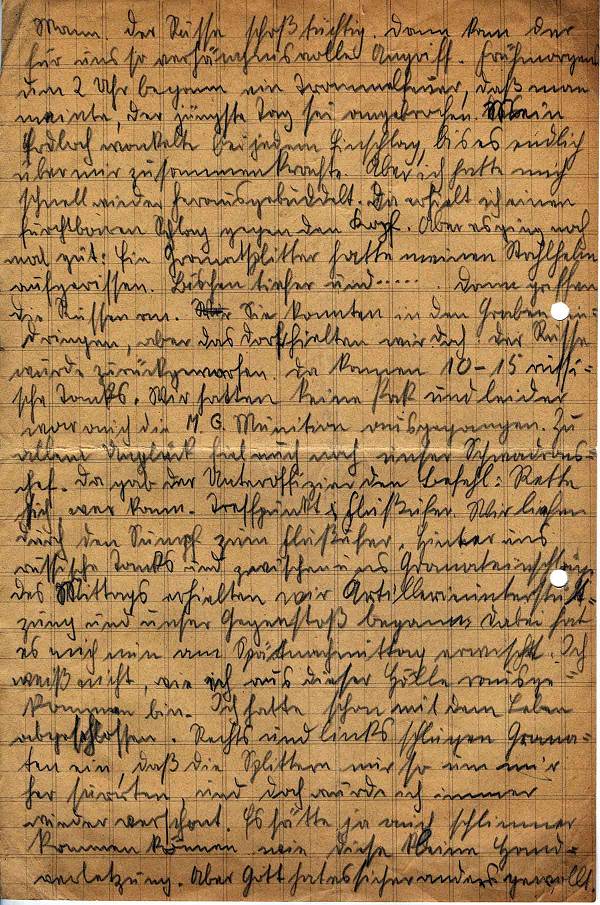 Mann. Der Russe schoß tüchtig. Dann kam der
für uns so verhängnisvolle Angriff. Frühmorgens
um 2 Uhr begann ein Trommelfeuer, daß man
meinte, der jüngste Tag sei angebrochen. Mein
Erdloch wankelte bei jedem Einschlag, bis es endlich
über mir zusammenkrachte. Aber ich hatte mich
schnell wieder herausgebuddelt. Da erhielt ich einen
furchtbaren Schlag gegen den Kopf. Aber es ging noch
mal gut: Ein Granatsplitter hatte meinen Stahlhelm
aufgerissen. Bischen tiefer und...... Dann griffen
die Russen an. Sie konnten in den Graben ein-
dringen, aber das Dorf hielten wir doch. Der Russe
wurde zurückgeworfen. Da kamen 10-15 russi-
sche Tanks. Wir hatten keine Pak und leider
war auch die M.G. Munition ausgegangen. Zu
allem Unglück fiel auch noch unser Schwadrons-
chef. Da gab der Unteroffizier den Befehl: Rette
sich wer kann. Treffpunkt Flußufer. Wir liefen
durch den Sumpf zum Flußufer, hinter uns
russische Tanks und zwischen uns Granateinschläge
des Mittags erhielten wir Artillerieunterstüt-
zung und unser Gegenstoß begann. Dabei hat
es mich nun am Spätnachmittag erwischt. Ich
weiß nicht, wie ich aus dieser Hölle rausge-
kommen bin. Ich hatte schon mit dem Leben
abgeschlossen. Rechts und links schlugen Grana-
ten ein, daß die Splittern mir so um mir
her surrten und doch wurde ich immer
wieder verschont. Es hätte ja auch schlimmer
kommen können wie diese kleine Hand-
verletzung. Aber Gott hat es sicher anders gewollt.